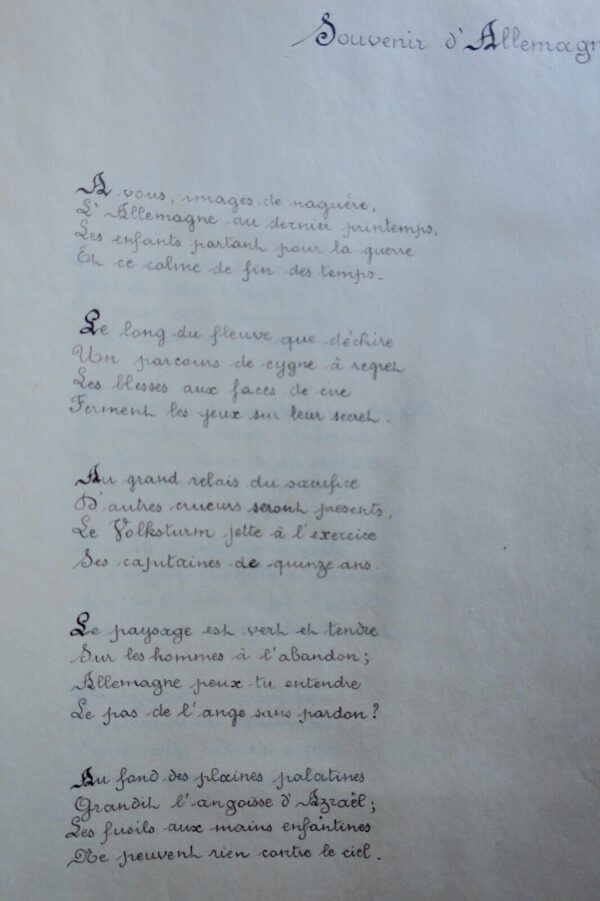 Souvenir d'Allemagn
A vous, images de naguère,
L'Allemagne au dernier printemps,
Les enfants partant pour la guerre
Et ce calme de fin des temps.
Le long du fleuve que déchire
Un parcours de cygne à regret
Les blesses aux faces de cire
Ferment les yeux sur leur secret.
Au grand relais du sacrifice
D'autres crueurs seront presents,
Le Volksturm jette à l'exercice
Ses capitaines de quinze ans.
Le paysage est vert et tendre
Sur les hommes à l'abandon;
Allemagne peux tu entendre
Le pas de l'ange sans pardon?
Au fond des plaines palatines
Grandit l'angoisse d'Azraël;
Les fusils aux mains enfantines
Ne peuvent rien contre le ciel.